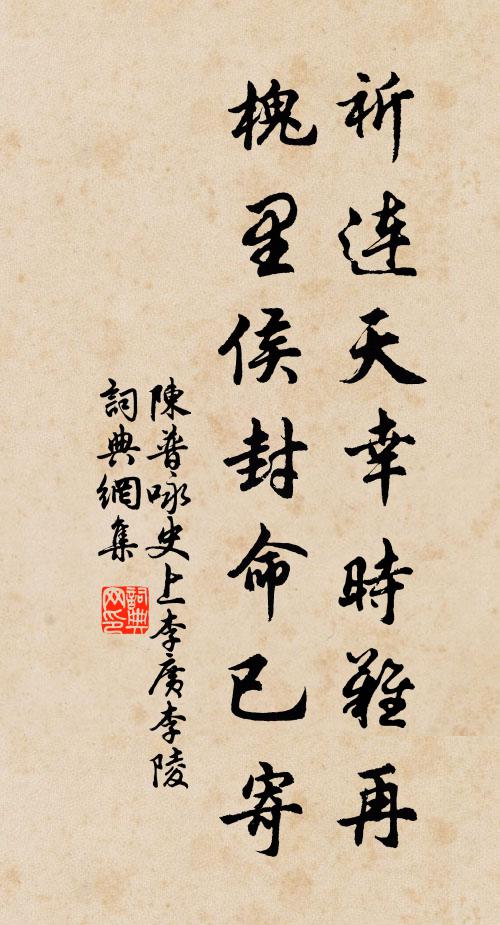 祈連天幸時難再
槐里侯封命已寄
陳普咏史上李廣李陵
詞典網集
詞典网印